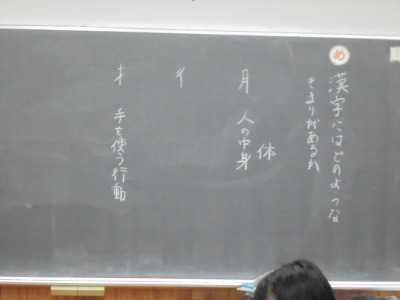 め
漢字にはどのような
きまりがあるか
月 人の中身
体
彳
扌 手を使う行動